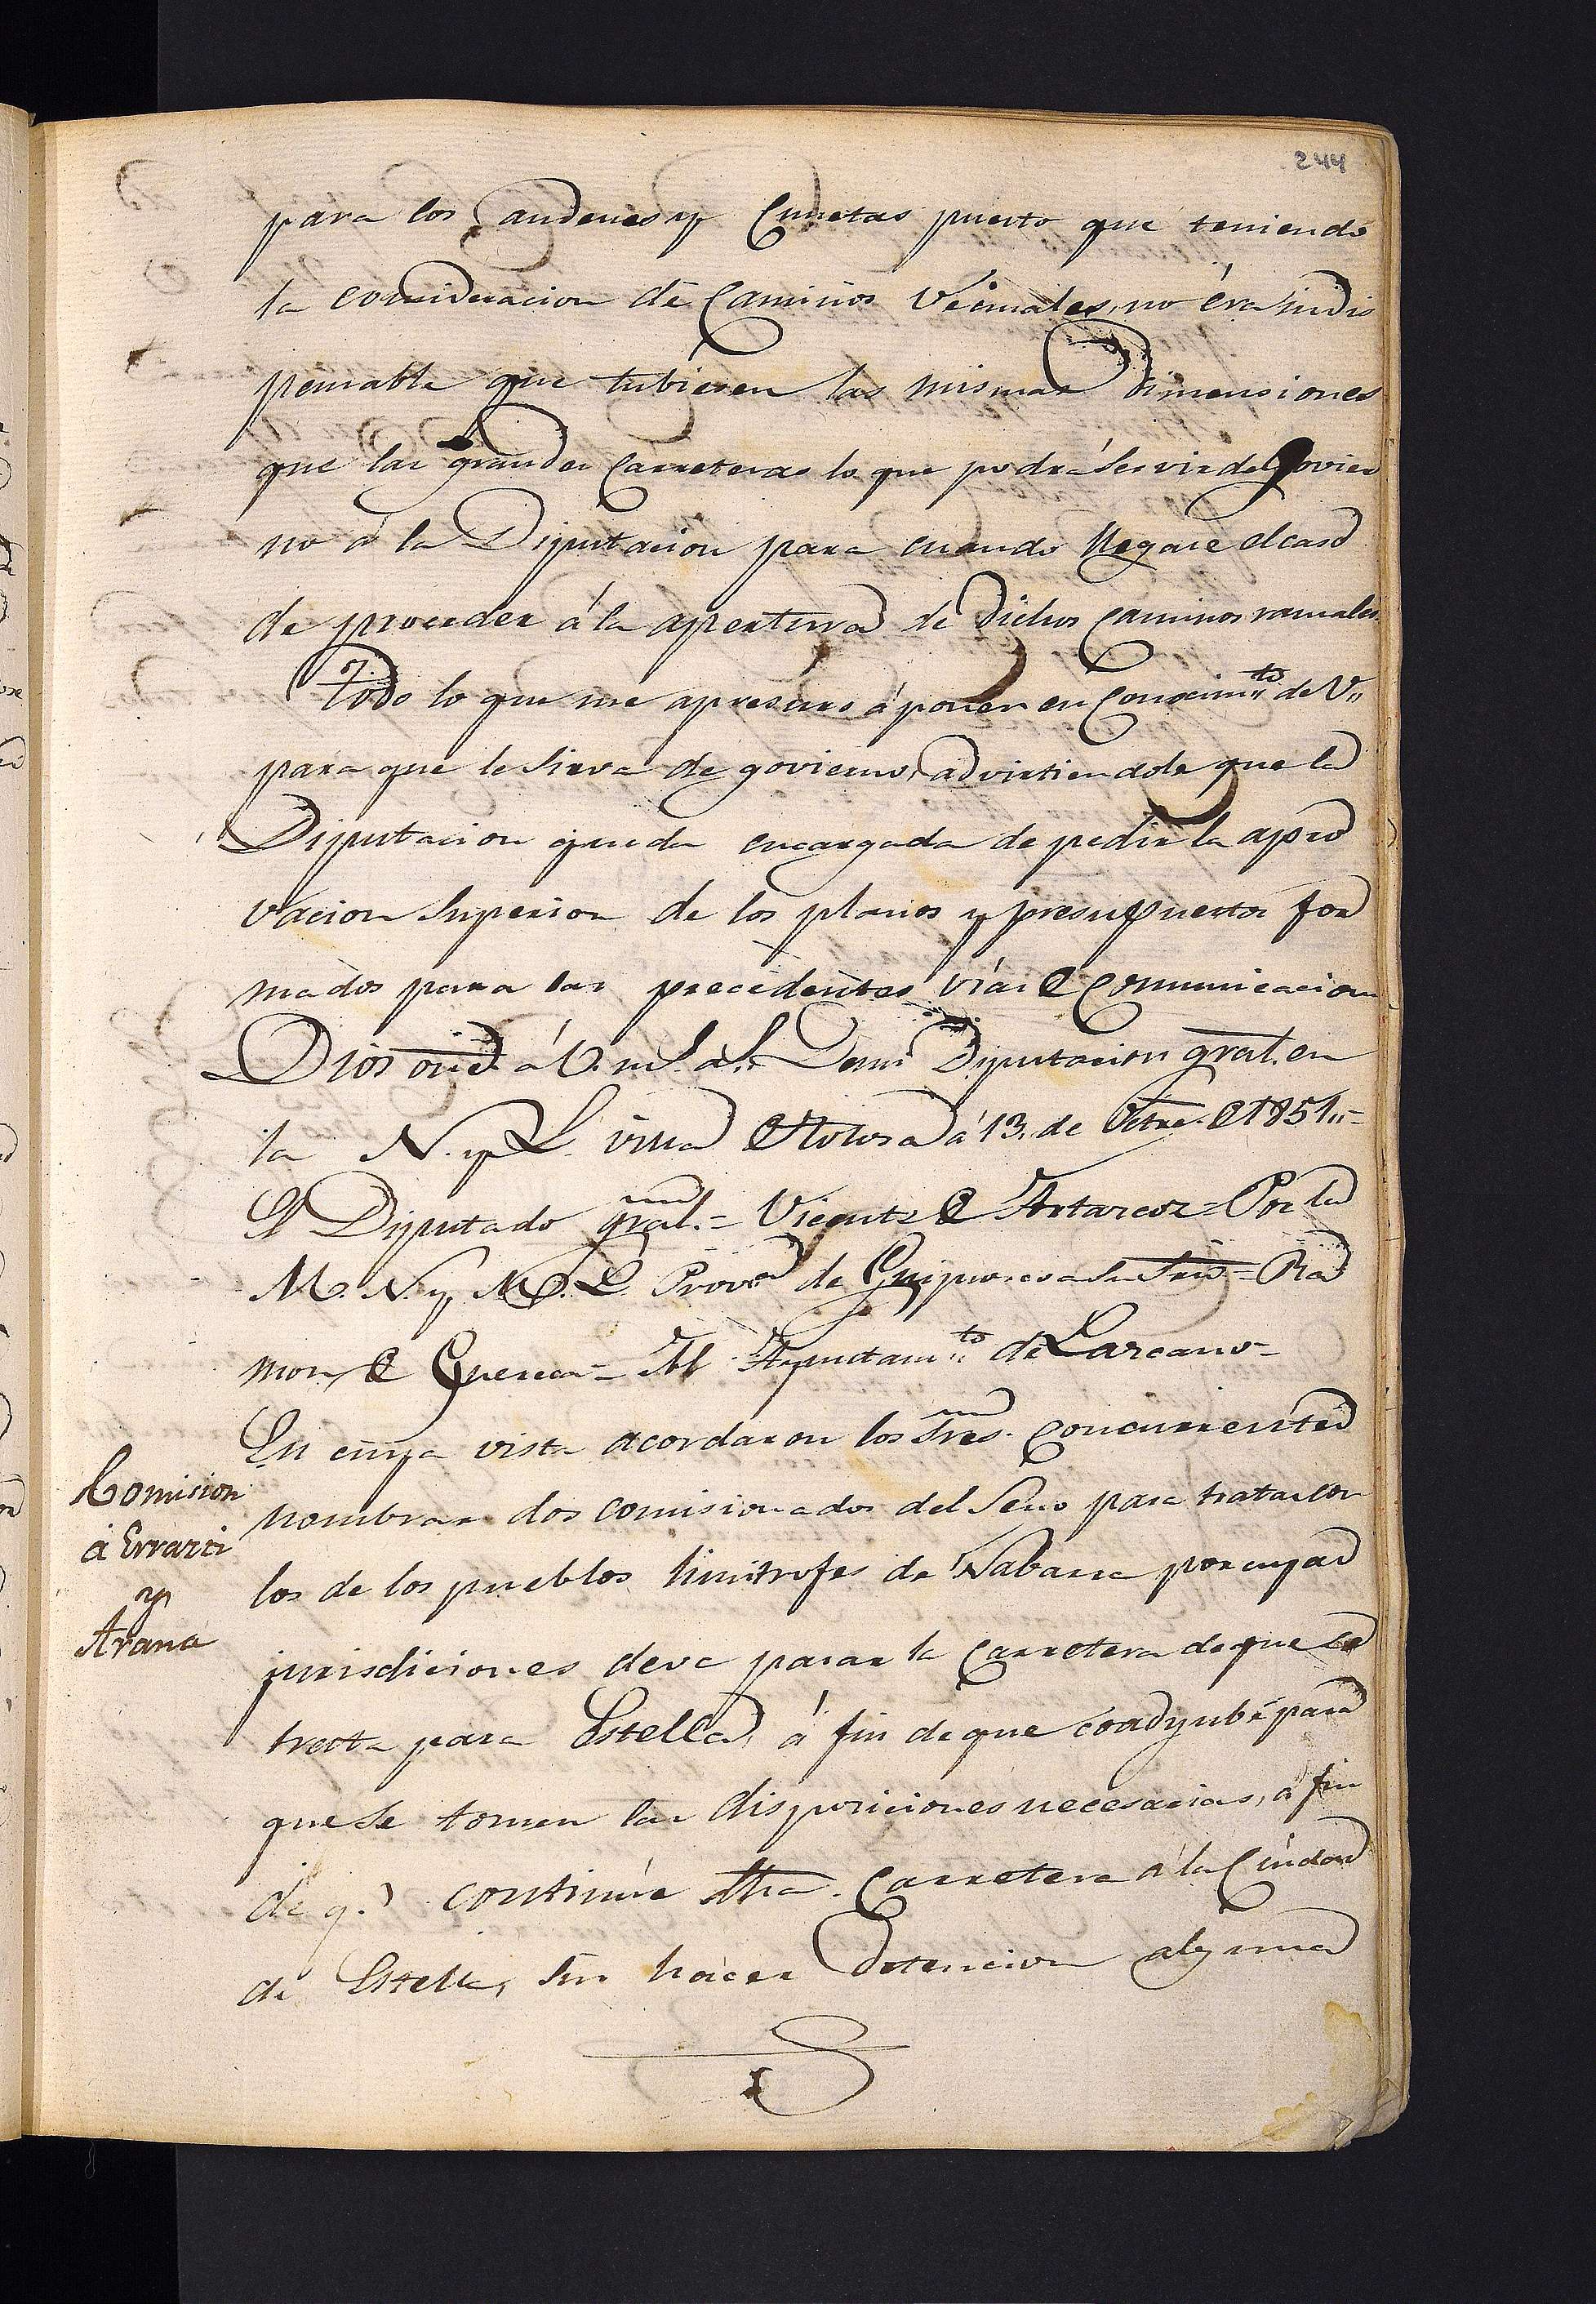 244
para los andenes y Cunetas puesto que teniendo
la consideracion de Caminos Vecinales, no éra indis
pensable que tubiesen las mismas dimensiones
que las grandes Carreteras lo que podrá Servir de Govier
no á la Diputacion para cuando llegase el caso
de proceder á la apertura de dichos Caminos ramales.
Todo lo que me apresuro á poner en Conocim.to de V.
para que le Sirva de govierno, advirtiendole que la
Diputacion queda encargada de pedir la apro
vacion Superior de los planos y presupuestos for
mados para las precedentes vías de Comunicacion
Dios gûe á V. m.s a.s De mi Diputacion gral. en
la N. y L. villa de Tolosa á 13. de Octre. de 1851.=
El Diputado gral.= Vicente de Artazcoz= Por la
M. N. y M. L. Prov.a de Guipuzcoa Su Srio= Ra
mon de Guerea= Al Ayuntam.to de Lazcano=
En cuya vista acordaron los Sres. Concurrentes
nombrar dos comisionados del Seno para tratar con
los de los pueblos limitrofes de Nabarra por cuyas
jurisdiciones deve pasar la Carretera de que se
trata para Estella, á fin de que coadyube para
que Se tomen las disposiciones necesarias, a fin
de q.e continúe dha. Carretera á la Ciudad
de Estella, Sin hacer detencion alguna
Comision
á Errazti
y
Arana